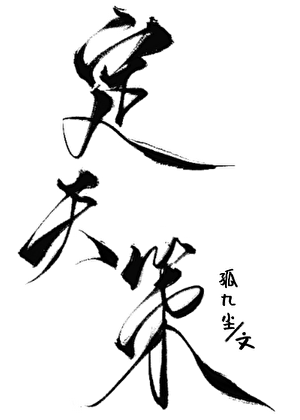 定天策
孤九尘/文